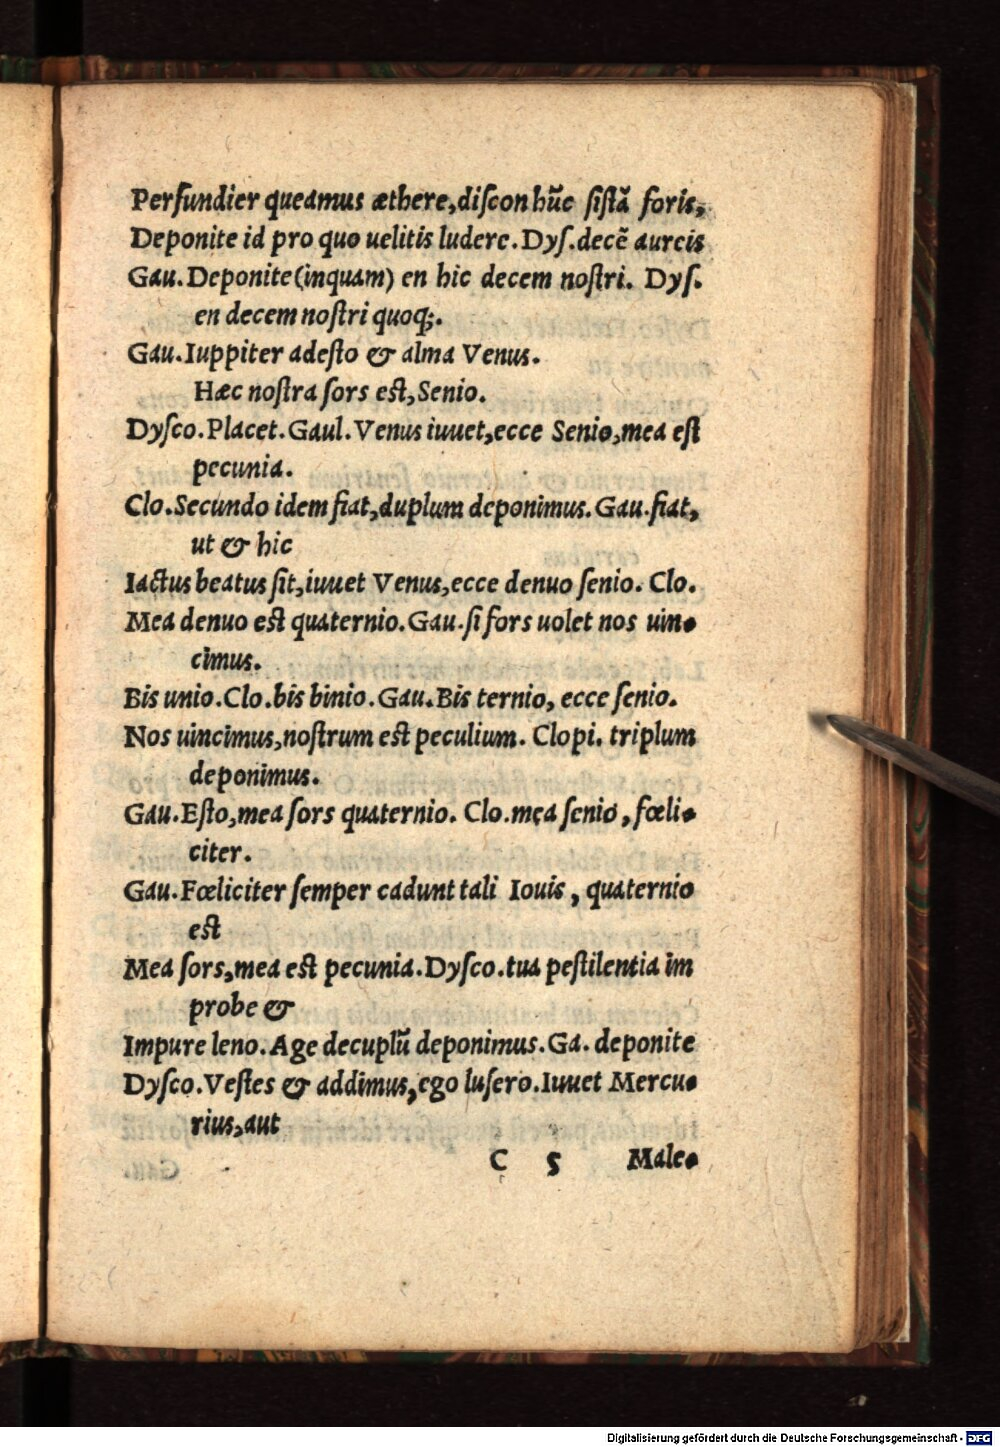 Perfundier queamus æthere, discon hūc sistā foris,
Deponite id pro quo uelitis ludere. Dys. decē aureis
Gau. Deponite (inquam) en hic decem nostri. Dys.
en decem nostri quoq;.
Gau. Iuppiter adesto & alma Venus.
Hæc nostra sors est, Senio.
Dysco. Placet. Gaul. Venus iuuet, ecce Senio, mea est
pecunia.
Clo. Secundo idem fiat, duplum deponimus. Gau. fiat,
ut & hic
Iactus beatus sit, iuuet Venus, ecce denuo senio. Clo.
Mea denuo est quaternio. Gau. si fors uolet nos uin-
cimus.
Bis unio. Clo. bis binio. Gau. Bis ternio, ecce senio.
Nos uincimus, nostrum est peculium. Clopi. triplum
deponimus.
Gau. Esto, mea sors quaternio. Clo. mea senio, fœli-
citer.
Gau. Fœliciter semper cadunt tali Iouis, quaternio
est
Mea sors, mea est pecunia. Dysco. tua pestilentia im
probe &
Impure leno. Age decuplū deponimus. Ga. deponite
Dysco. Vestes & addimus, ego lusero. Iuuet Mercu-
rius, aut
C 5 Male-
Digitalisierung gefördert durch die Deutsche Forschungsgemeinschaft - DFG